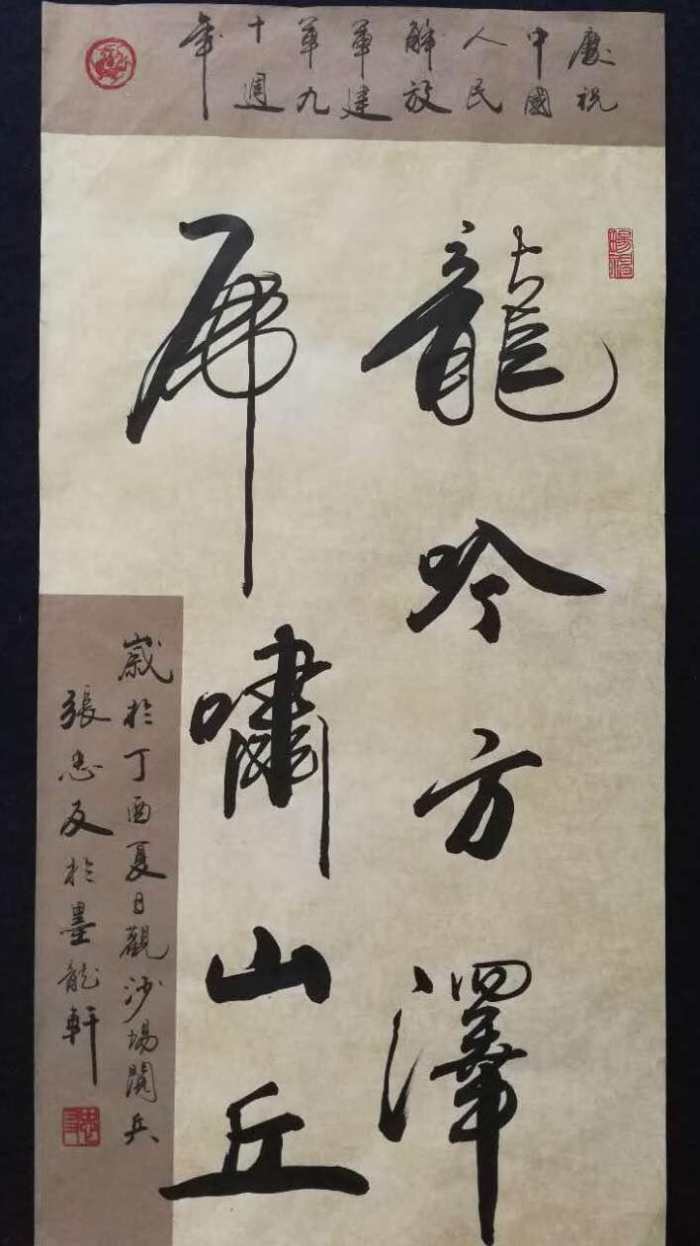 慶祝
中國
人民
解放
軍建
軍九
十週
年
龍吟方澤
虎嘯山丘
歲於丁酉夏日觀沙場閱兵
張忠友於墨龍軒